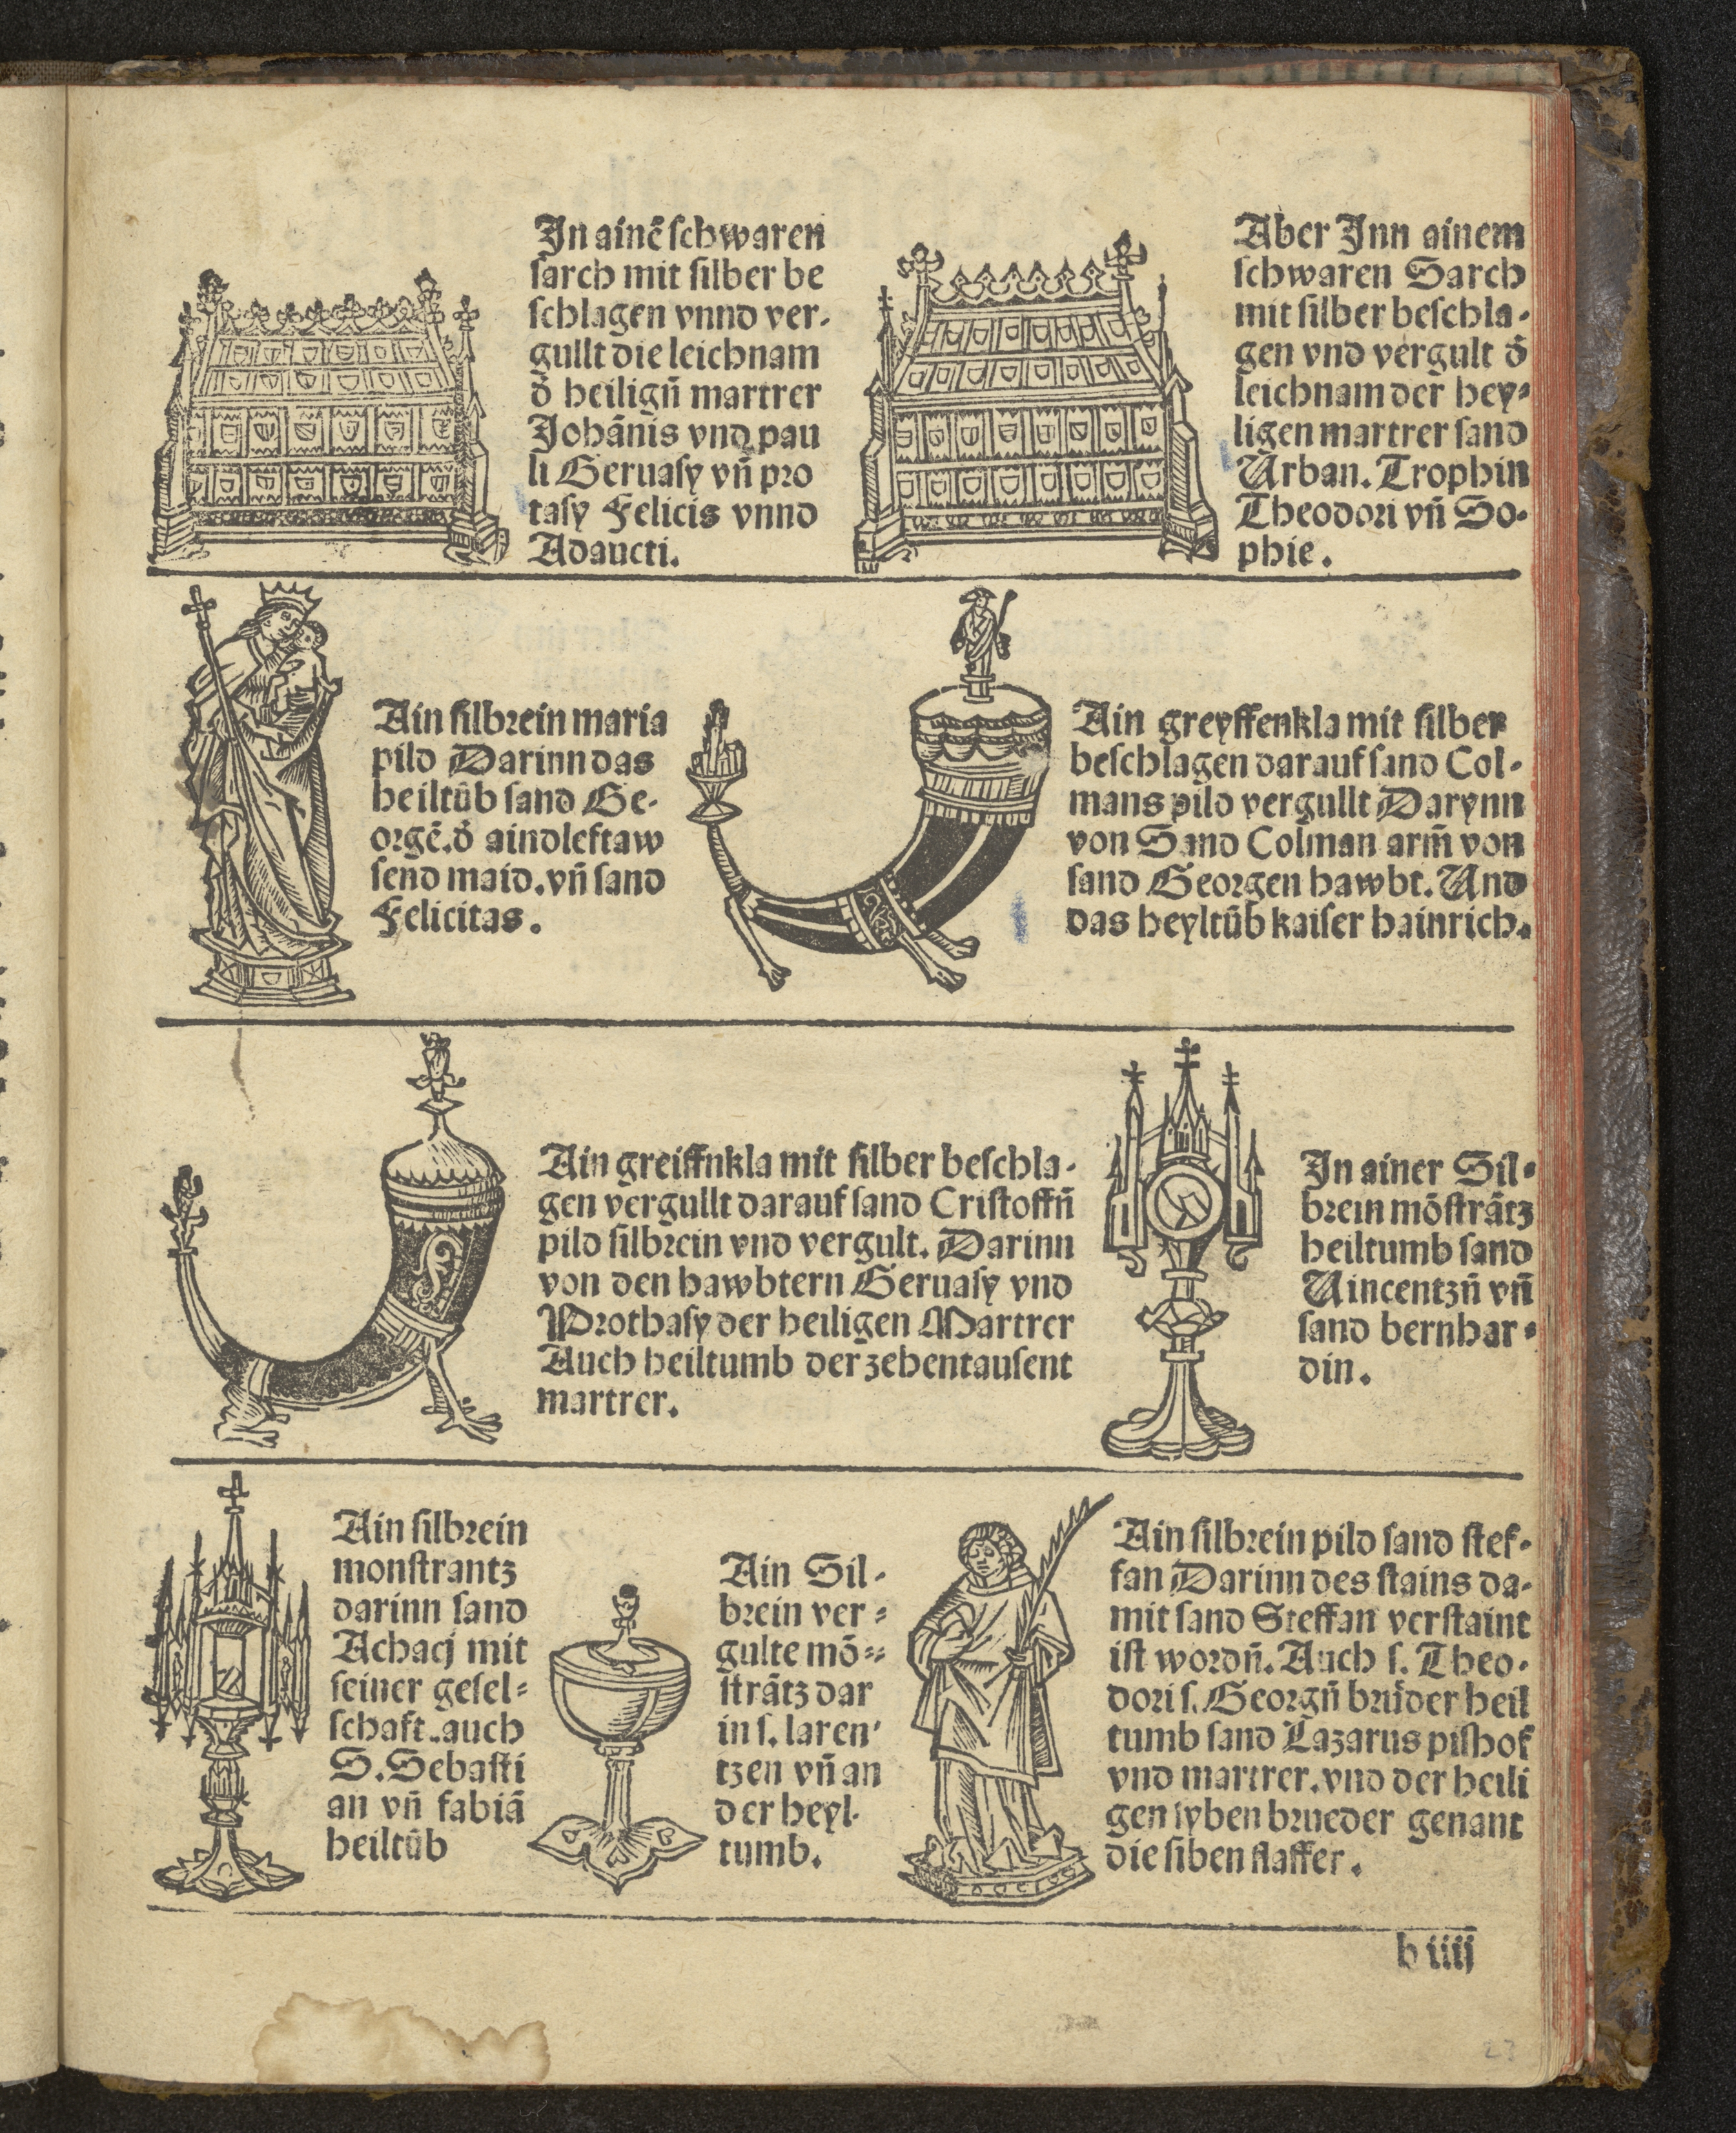 Jn ainē schwaren
sarch mit silber be
schlagen vnnd ver-
gullt die leichnam
d̕ heiligñ martrer
Johānis vnd pau
li Geruasy vñ pro
tasy Felicis vnnd
Adaucti.
Aber Jnn ainem
schwaren Sarch
mit silber beschla-
gen vnd vergult d̕
leichnam der hey-
ligen martrer sand
Urban. Trophin
Theodori vñ So-
phie.
Ain silbrein maria
pild Darinn das
heiltūb sand Ge-
orgē. d̕ aindleftaw
send maid. vñ sand
Felicitas.
Ain greyffenkla mit silber
beschlagen darauf sand Col-
mans pild vergullt Darynn
von Sand Colman arm̄ von
sand Georgen hawbt. Und
das heyltūb kaiser hainrich.
Ain greiffnkla mit silber beschla-
gen vergullt darauf sand Cristoffñ
pild silbrein vnd vergult. Darinn
von den hawbtern Geruasy vnd
Prothasy der heiligen Martrer
Auch heiltumb der zehentausent
martrer.
Jn ainer Sil-
brein mōsträtz
heiltumb sand
Uincentzñ vñ
sand bernhar-
din.
Ain silbrein
monstrantz
darinn sand
Achacj mit
seiner gesel-
schaft. auch
S. Sebasti
an vñ fabiā
heiltūb
Ain Sil-
brein ver-
gulte mō-
strātz dar
in s. laren-
tzen vñ an
der heyl-
tumb.
Ain silbrein pild sand stef-
fan Darinn des stains da-
mit sand Steffan verstaint
ist wordñ. Auch s. Theo-
dori s. Georgñ brůder heil
tumb sand Lazarus pishof
vnd martrer. vnd der heili
gen syben brueder genant
die siben slaffer.
b iiij
23